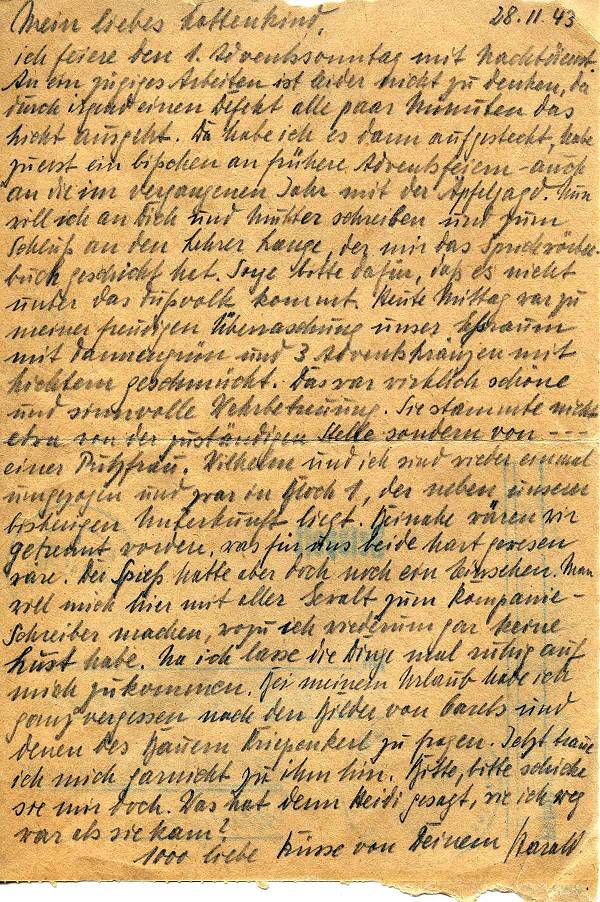 Mein liebes Lottenkind, 28.11.43
ich feiere den 1. Adventssonntag mit Nachtdienst.
An ein zügiges Arbeiten ist leider nicht zu denken, da
durch irgend einen Defekt alle paar Minuten das
Licht ausgeht. Da habe ich es dann aufgesteckt, habe
zuerst ein bißchen an frühere Adventsfeiern - auch
an die im vergangenen Jahr mit der Äpfeljagd. Nun
will ich an Dich und Mutter schreiben und zum
Schluß an den Lehrer Lange, der mir das
buch geschickt hat. Sorge bitte dafür, daß es nicht
unter das Fußvolk kommt. Heute Mittag war zu
meiner freudigen Überraschung unser Eßraum
mit Tannengrün und 3 Adventskränzen mit
Lichtern geschmückt. Das war wirklich schöne
und sinnvolle Wehrbetreuung. Sie stammte nicht
etwa von der zuständigen Stelle sondern von ---
einer Putzfrau. Wilhelm und ich sind wieder einmal
umgezogen und zwar in Block 1, der neben unserer
bisherigen Unterkunft liegt. Beinahe wären wir
getrennt worden, was für uns beide hart gewesen
wäre. Der Spieß hatte aber doch noch ein Einsehen. Man
will mich hier mit aller Gewalt zum Kompanie-
Schreiber machen, wozu ich wiederum gar keine
Lust habe. Na ich lasse die Dinge mal ruhig auf
mich zukommen. Bei meinem Urlaub habe ich
ganz vergessen nach den Bilder von Carels und
denen des Bauern Kriepenkerl zu fragen. Jetzt traue
ich mich garnicht zu ihm hin. Bitte, bitte schicke
sie mir doch. Was hat denn Heidi gesagt, wie ich weg
war als sie kam?
1000 liebe Küsse von Deinem Harald